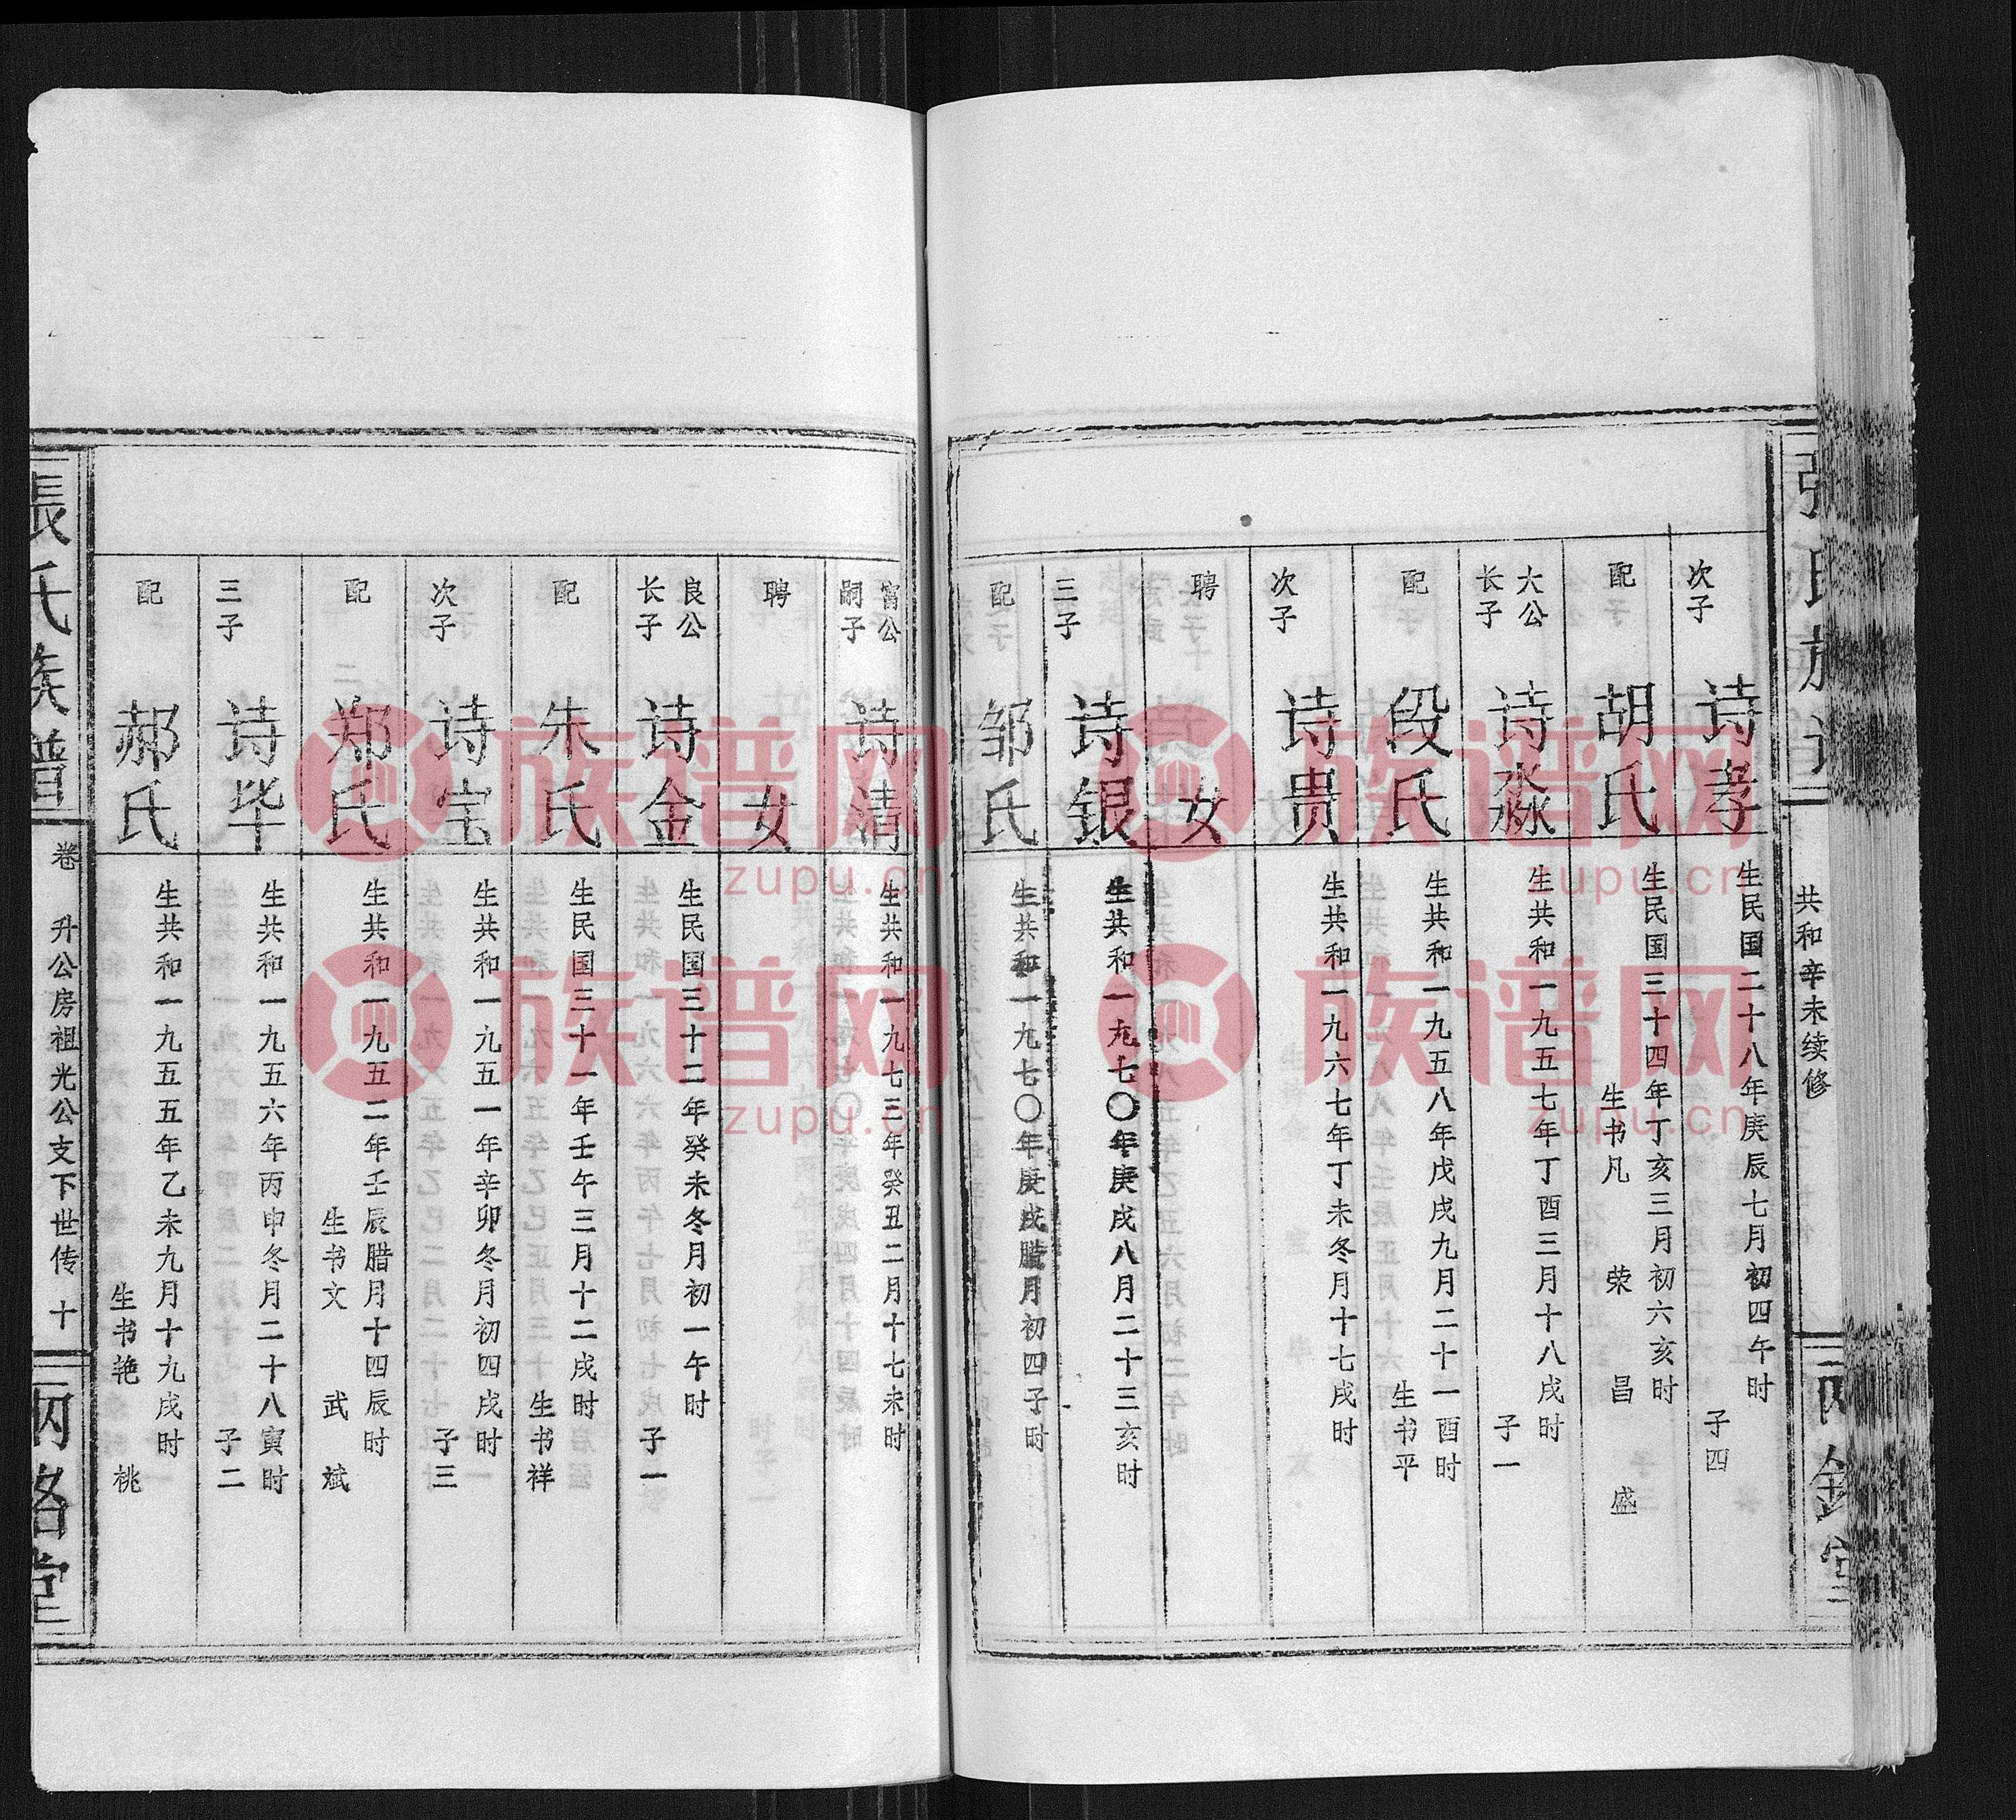 共和辛未续修
次子 诗孝 生民国二十八年庚辰七月初四午时 子四
配 胡氏 生民国三十四年丁亥三月初六亥时 生书凡 荣 昌 盛
大公长子 诗淼 生共和一九五七年丁酉三月十八戌时 子一
配 段氏 生共和一九五八年戊戌九月二十一酉时 生书平
次子 诗贵 生共和一九六七年丁未冬月十七戌时
聘 女
三子 诗银 生共和一九七〇年庚戌八月二十三亥时
配 邹氏 生共和一九七〇年庚戌腊月初四子时
富公嗣子 诗清 生共和一九七三年癸丑二月十七未时
聘 女
良公长子 诗金 生民国三十二年癸未冬月初一午时 子一
配 朱氏 生民国三十一年壬午三月十二戌时 生书祥
次子 诗宝 生共和一九五一年辛卯冬月初四戌时 子三
配 郑氏 生共和一九五二年壬辰腊月十四辰时 生书文 武 斌
三子 诗毕 生共和一九五六年丙申冬月二十八寅时 子二
配 郝氏 生共和一九五五年乙未九月十九戌时 生书艳 桃
張氏族譜 卷 升公房祖光公支下世传 十
族谱网
zupu.cn
族谱网
zupu.cn
族谱网
zupu.cn
族谱网
zupu.cn